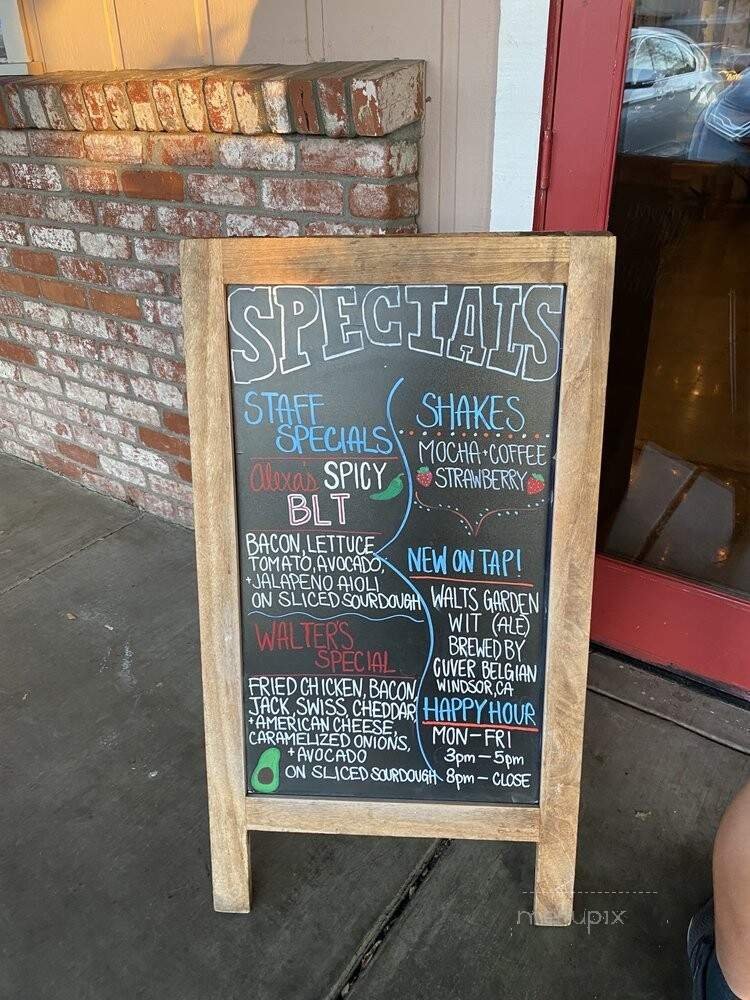 SPECIALS
STAFF
SPECIALS
Alexa's SPICY
BLT
BACON, LETTUCE
TOMATO, AVOCADO,
+JALAPENO AIOLI
ON SLICED SOURDOUGH
WALTER'S
SPECIAL
FRIED CHICKEN, BACON
JACK, SWISS, CHEDDAR
+AMERICAN CHEESE,
CARAMELIZED ONIONS,
+ AVOCADO
ON SLICED SOURDOUGH
SHAKES
MOCHA + COFFEE
STRAWBERRY
NEW ON TAP!
WALTS GARDEN
WIT (ALE)
BREWED BY
CUVER BELGIAN
WINDSOR, CA
HAPPY HOUR
MON-FRI
3pm - 5pm
8pm - CLOSE
menupix